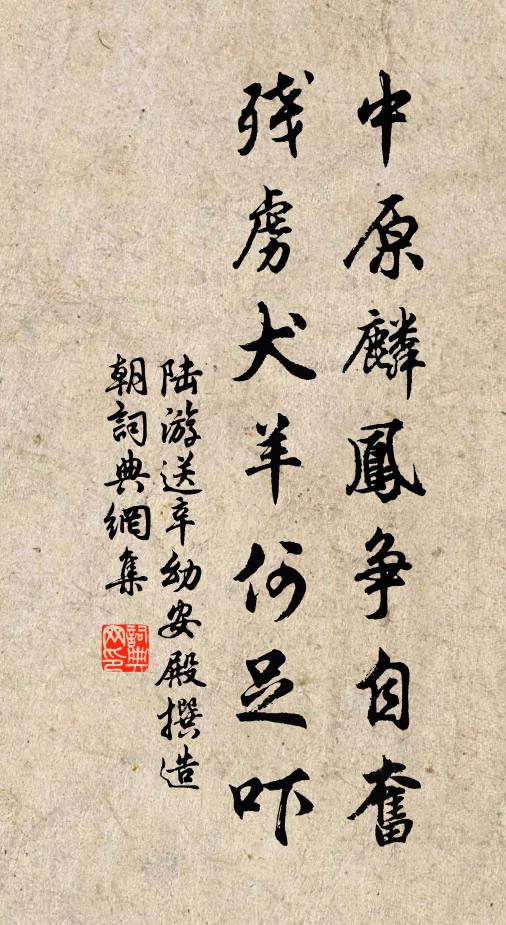 中原麟鳳争自奮
残虏犬羊何足吓
陆游送辛幼安殿撰造
朝詞典網集
詞典網印